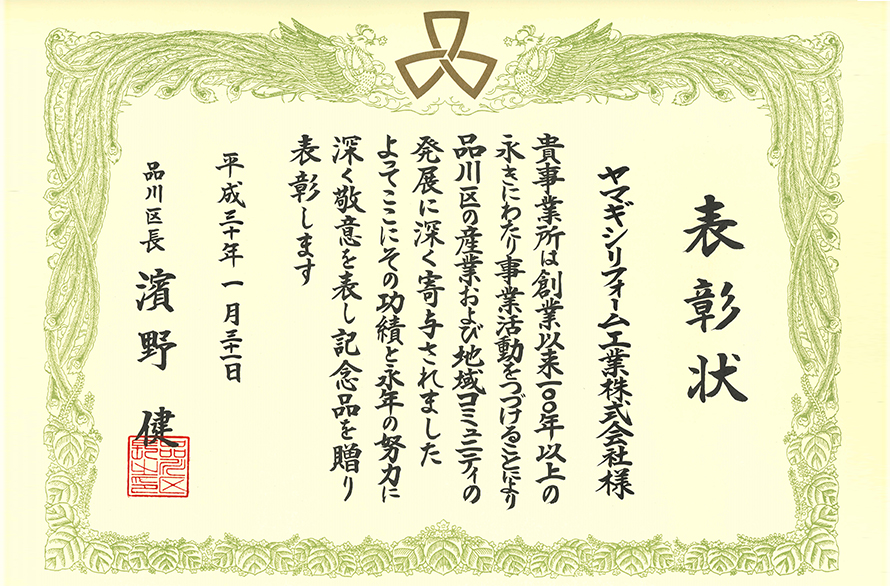 表彰状
ヤマギシリフォーム工業株式会社様
貴事業所は創業以来一〇〇年以上の
永きにわたり事業活動をつづけることにより
品川区の産業および地域コミュニティの
発展に深く寄与されました
よってここにその功績と永年の努力に
深く敬意を表し記念品を贈り
表彰します
平成三十年一月三十一日
品川区長 濱野健
品川区長之印